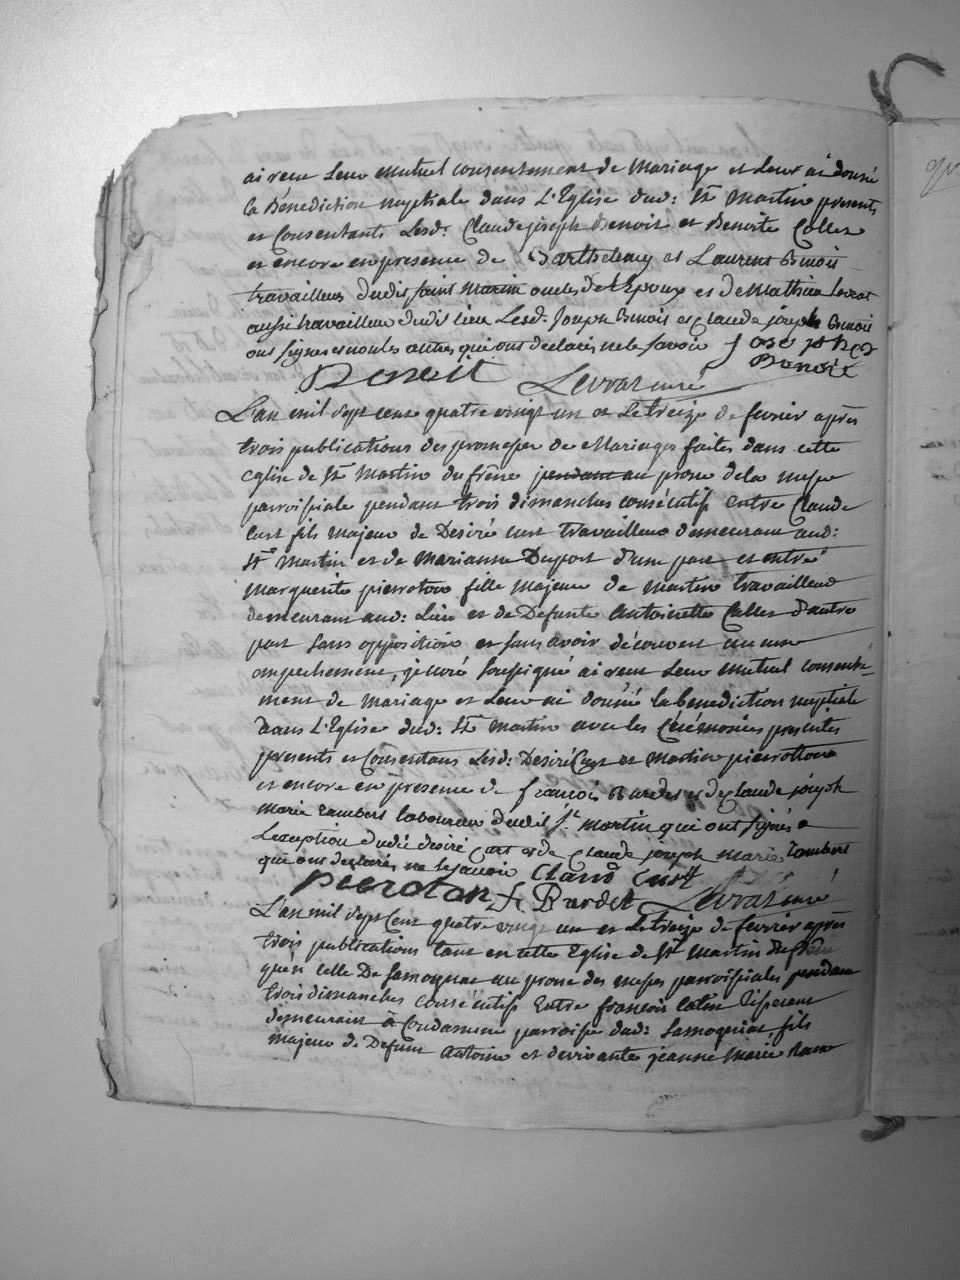 ai reçu Leur mutuel consentement de Mariage et Leur ai donné
la Bénédiction nuptiale dans L'Eglise dud: St Martin presents
et Consentants Lesd: Claude joseph Benoit et Benoite Collet
et encore en presence de Barthelemy et Laurent Benoit
travailleurs dudit Saint Martin oncles de l'Epoux et de Mathieu Levrat
aussi travailleur dudit lieu Lesd: Joseph Benoit et Claude joseph Benoit
ont signés et non les autres qui ont declarés ne le savoir Josepht
Benoit
Benoit Levrat curé
L'an mil sept cent quatre vingt un et Le treize de fevrier après
trois publications des promesses de Mariages faites dans cette
eglise de St Martin du frêne pendant au prone de la messe
parroissiale pendant trois dimanches consécutifs entre Claude
Cust fils majeur de Desiré Cust travailleur demeurant aud:
St Martin et de Marianne Duport d'une part et entre
Marguerite pierroton fille Majeure de Martin travailleur
demeurant aud: Lieu et de Defunte Antoinette Collet d'autre
part sans opposition et sans avoir découvert aucun
empechement, je curé soussigné ai reçut Leur Mutuel consente-
ment de Mariage et Leur ai donné la benediction nuptiale
dans L'Eglise dud: St Martin avec les Cérémonies prescrites
presents et Consentans Lesd: Desiré Cust et Martin pierrotton
et encore en presence de françois Bardet et de Claude joseph
Marie Tambert laboureur dudit St Martin qui ont signés a
L'exception dudit desiré Cust et de Claude joseph Marie Tambert
qui ont declarés ne le savoir Claud Cust
pierotan f. Bardet Levrat curé
L'an mil sept Cent quatre vingt un et Le treize de fevrier après
trois publications tant en cette Eglise de St Martin du frêne
qu'en celle De Samognat au prone des messes parroissiales pendant
trois dimanches consécutifs Entre françois Catin Tisserant
demeurant à Condamine parroisse dud: Samognat, fils
majeur de Defunt Antoine et de vivante jeanne Marie